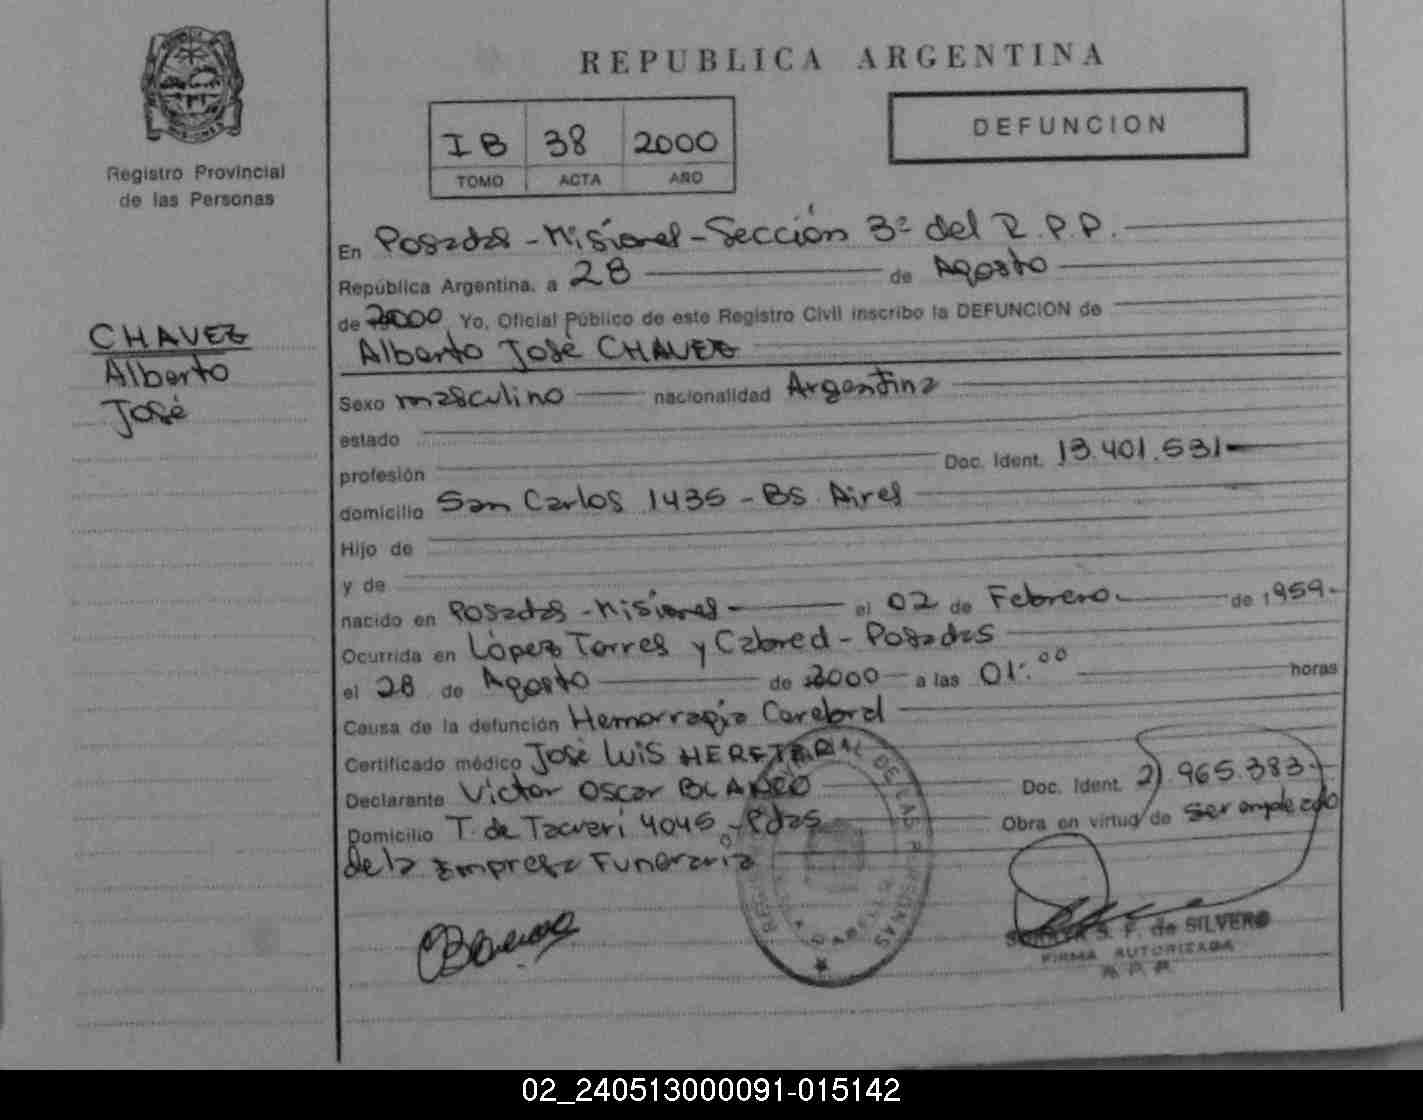 REPUBLICA ARGENTINA
IB 38 2000
TOMO ACTA AÑO
DEFUNCION
Registro Provincial
de las Personas
CHAVEZ
Alberto
José
En Posadas - Misiones - Sección 3ª del R.P.P.
República Argentina, a 28 de Agosto
de 2000 Yo, Oficial Público de este Registro Civil inscribo la DEFUNCION de
Alberto José CHAVEZ
Sexo masculino nacionalidad Argentina
estado
profesión Doc. Ident. 13.401.531
domicilio San Carlos 1435 - Bs. Aires
Hijo de
y de
nacido en Posadas - Misiones - el 02 de Febrero de 1959
Ocurrida en López Torres y Cabred - Posadas
el 28 de Agosto de 2000 a las 01:00 horas
Causa de la defunción Hemorragia Cerebral
Certificado médico José Luis
Declarante Victor Oscar BLANCO Doc. Ident. 965.383
Domicilio T. de Tacuari 4045 - Pdas Obra en virtud de ser empleado
de la Empresa Funeraria
S. F. de SILVERO
FIRMA AUTORIZADA
R.P.P.
02_240513000091-015142